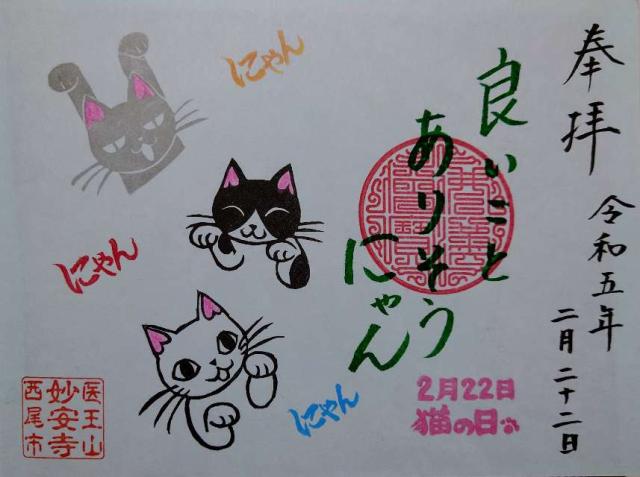 奉拝
令和五年
二月二十二日
良いこと
ありそう
にゃん
2月22日
猫の日
にゃん
にゃん
にゃん
医王山
妙安寺
西尾市